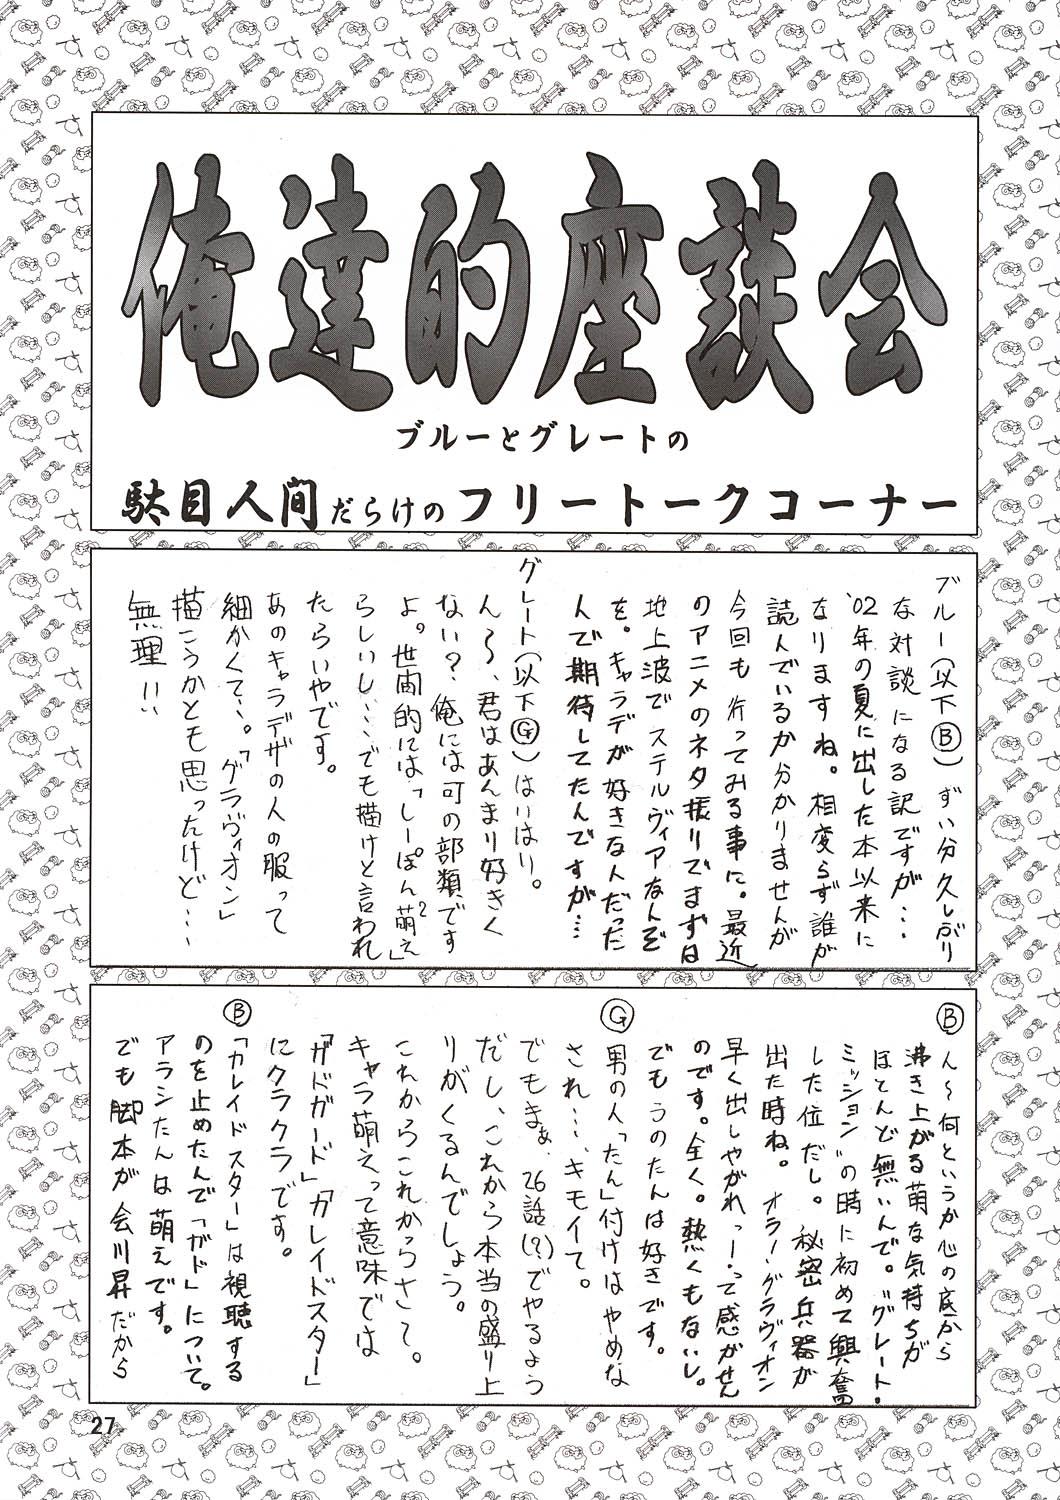 俺達的座談会
ブルーとグレートの
駄目人間だらけのフリートークコーナー
ブルー(以下Ⓑ)ずい分久しぶり
な対談になる訳ですが…
'02年の夏に出した本以来に
なりますね。相変らず誰が
読んでいるか分かりませんが
今回も行ってみる事に。最近
のアニメのネタ振りでまずは
地上波でステルヴィアなんぞ
を。キャラデが好きなんだった
んで期待してたんですが…
グレート(以下Ⓖ)はいはり。
ん〜、君はあんまり好きく
ない?俺には可の部類です
よ。世間的には「しーぽん萌え?」
らしいし…でも描けと言われ
たらいやです。
あのキャラデザの人の服って
細かくて…。「グラヴィオン」
描こうかとも思ったけど…
無理!!
Ⓑ
ん〜何というか心の底から
沸き上がる萌な気持ちが
ほとんど無いんで。"グレート・
ミッション"の時に初めて興奮
した位だし。秘密兵器が
出た時ね。オラーグラヴィオン
早く出しやがれっ!って感がせん
のです。全く。熱くもないし。
でもうのたんは好きです。
Ⓖ
男の人「たん」付けはやめな
され…キモイて。
でもまぁ、26話(?)でやるよう
だし、これから本当の盛り上
りがくるんでしょう。
これからこれからさて。
キャラ萌えって意味では
「ガドガード」「カレイドスター」
にクラクラです。
Ⓑ
「カレイドスター」は視聴する
のを止めたんで「ガド」について。
アラシたんは萌えです。
でも脚本が会川昇だから
27